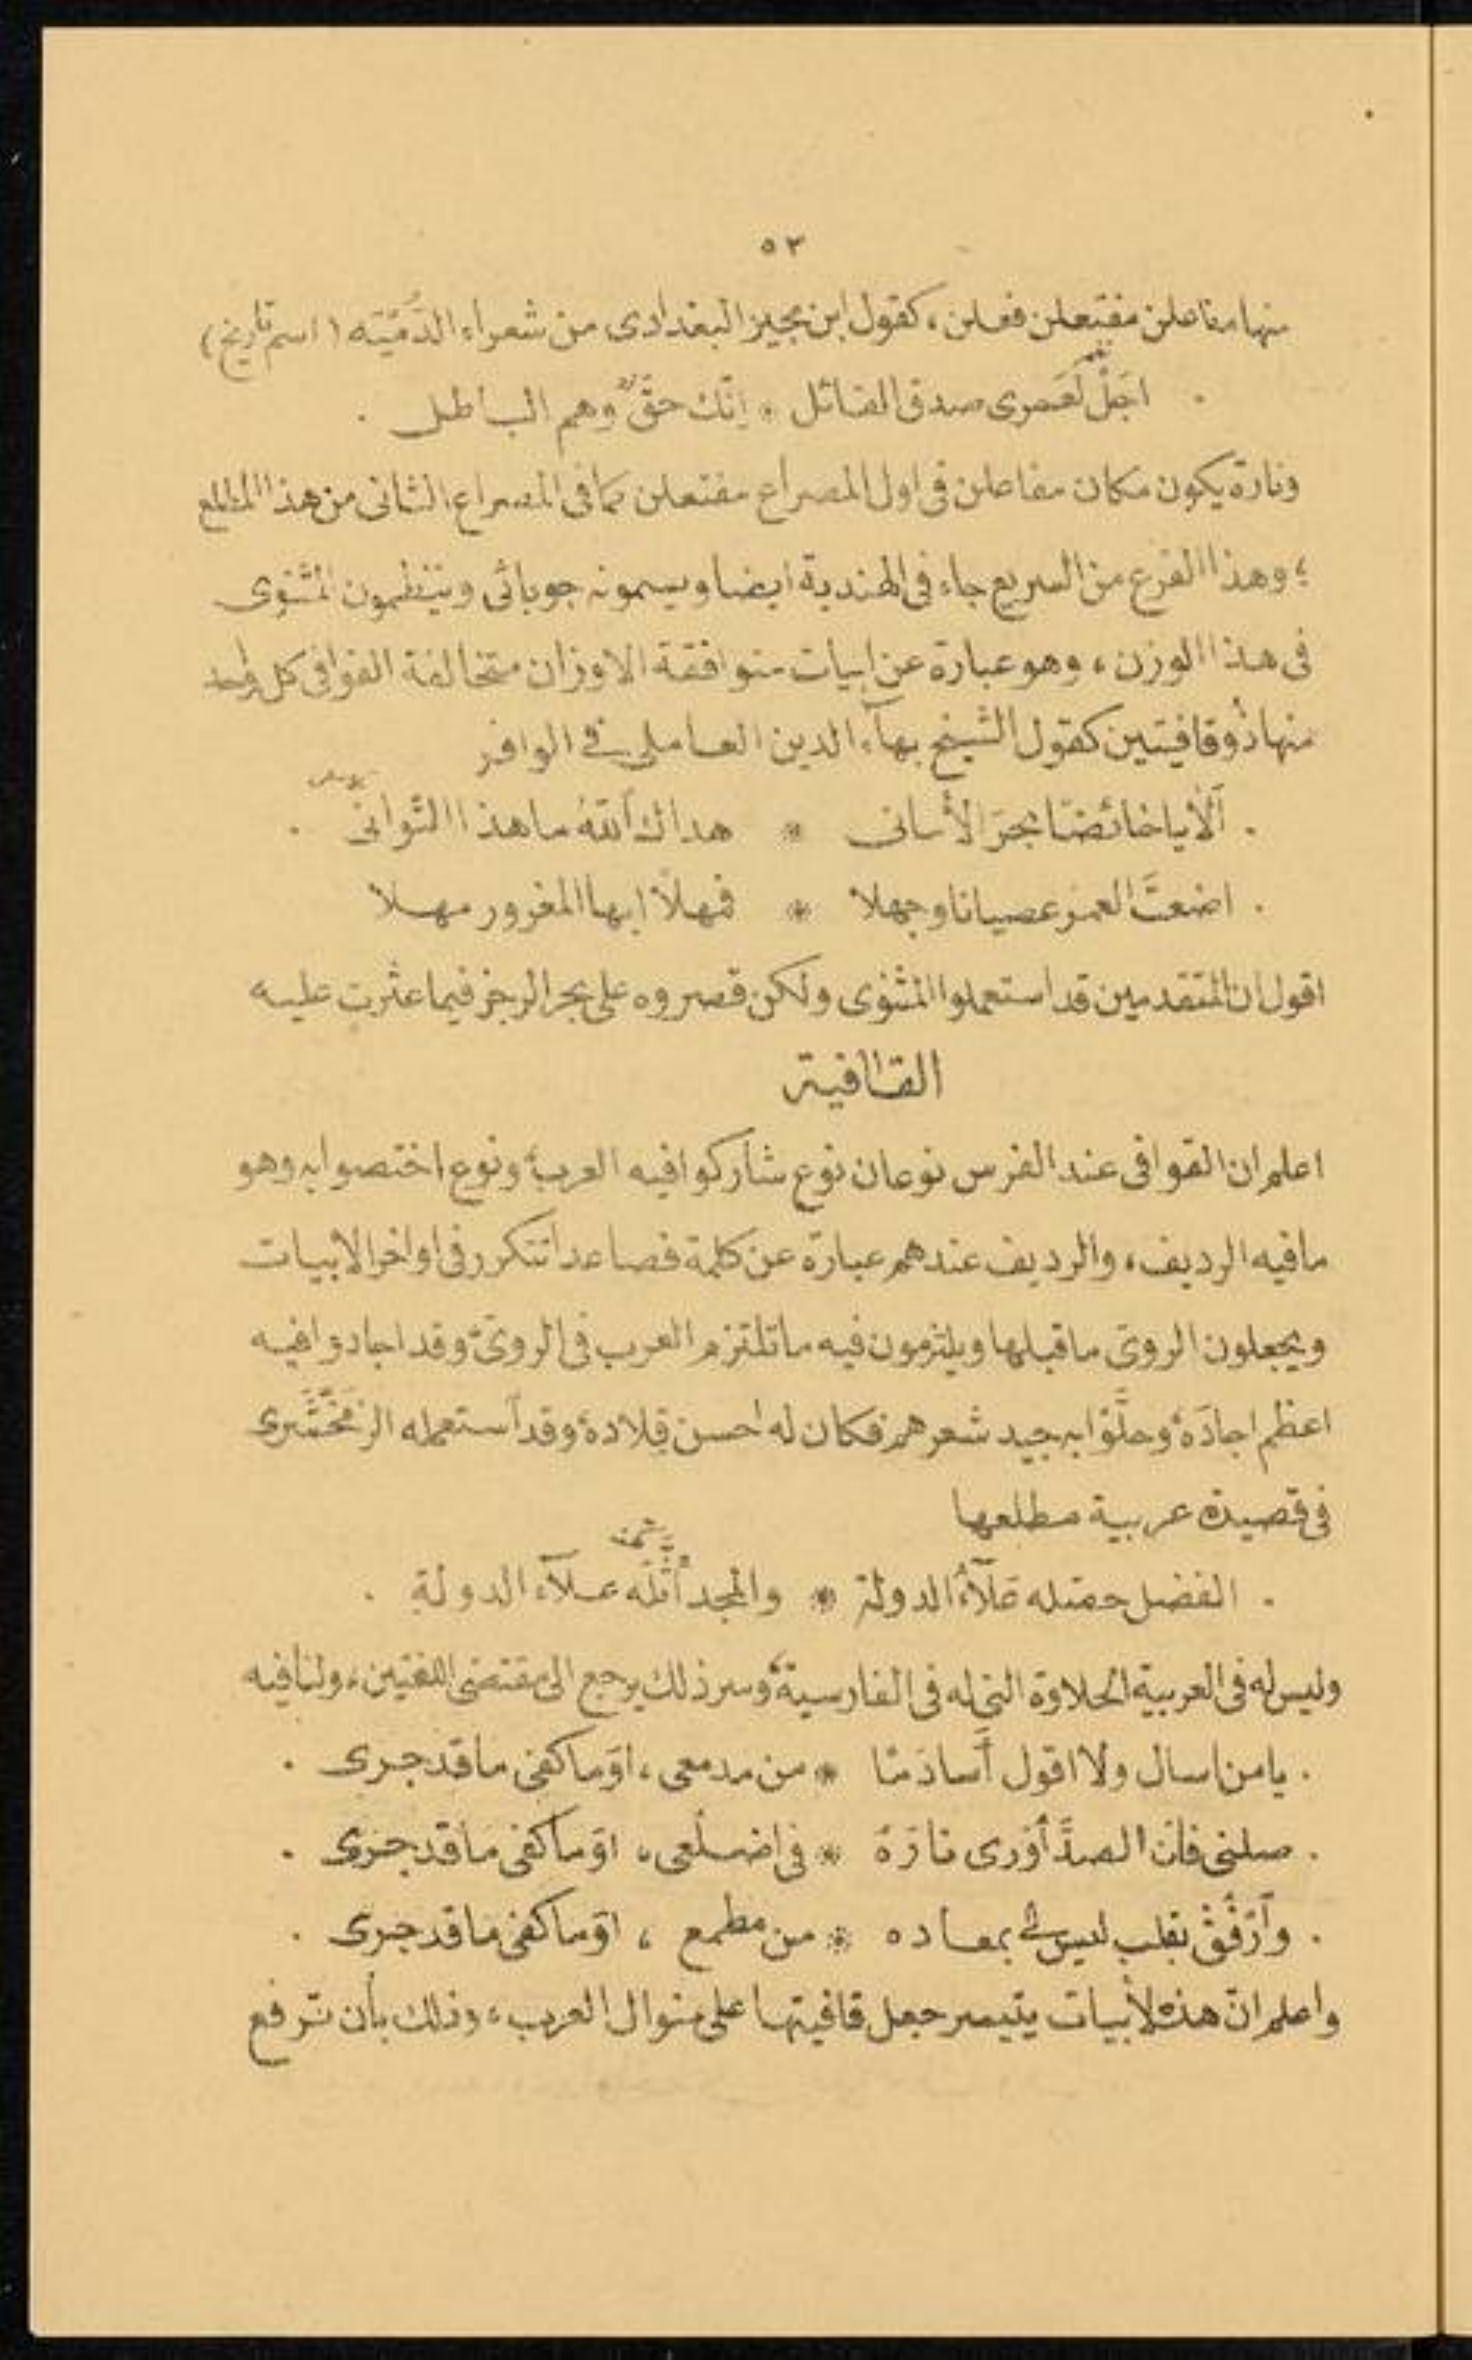 ٥٣
منها مفاعلن مفتعلن فعلن، كقول ابن بجيز البغدادى من شعراء الدُمْيَته (اسم تاريخ)
. اجَلْ لَعَمرى صدق القائل * اِنّك حقٌّ وهم الباطل .
وتارة يكون مكان مفاعلن فى اول المصراع مفتعلن كما فى المصراع الثانى من هذا المطلع
؛ وهذا الفرع من السريع جاء فى الهندية ايضا ويسمونه جوبائى وينظمون المثنوى
فى هذا الوزن، وهو عبارة عن ابيات متوافقة الاوزان متخالفة القوافى كل واحد
منها ذُو قافيتين كقول الشيخ بهاۤء الدين العاملى فى الوافر
. اَلاْ يا خائضًا بحرَ الأمانى * هداك اَللهُ ما هذا التَوانى .
. اضعتَ العمرَ عصيانا وجهلا * فمهلاً ايها المغرور مهلا
اقول ان المتقدمين قد استعملوا المثنوى ولكن قصروه على بحر الرجز فيما عثرت عليه
القافية
اعلم ان القوافى عند الفرس نوعان نوع شاركوا فيه العرب؛ ونوع اختصوا به وهو
ما فيه الرديف، والرديف عندهم عبارة عن كلمة فصاعدا تتكرر فى اواخر الابيات
ويجعلون الروىّ ما قبلها ويلتزمون فيه ما تلتزم العرب فى الروىّ؛ وقد اجادوا فيه
اعظم اجادَة؛ وحلَّوْا به جيد شعرهم فكان له احسن قِلادة؛ وقد اَستعمله الزمَخْشَرى
فى قصيدة عربية مطلعها
. الفضل حصّله عَلآۤءُ الدولة * والمجد اَثَّلَه عَلآۤء الدولةِ .
وليس له فى العربية الحلاوة التى له فى الفارسية؛ وسر ذلك يرجع الى مقتضى اللغتين، ولنا فيه
. يا من اسال ولا اقول أَسا دَمًا * من مدمعى، اوَما كفى ما قد جرى .
. صلنى فان الصدَّ أَوْرى نارَهُ * فى اضلُعى، اوَما كفى ما قد جرى .
. وآرْفُقْ بقلب ليس لى بمعاده * من مطمع، اوَما كفى ما قد جرى .
واعلم انّ هذه الأبيات يتيسر جعل قافيتها على منوال العرب، وذلك بأن ترفع